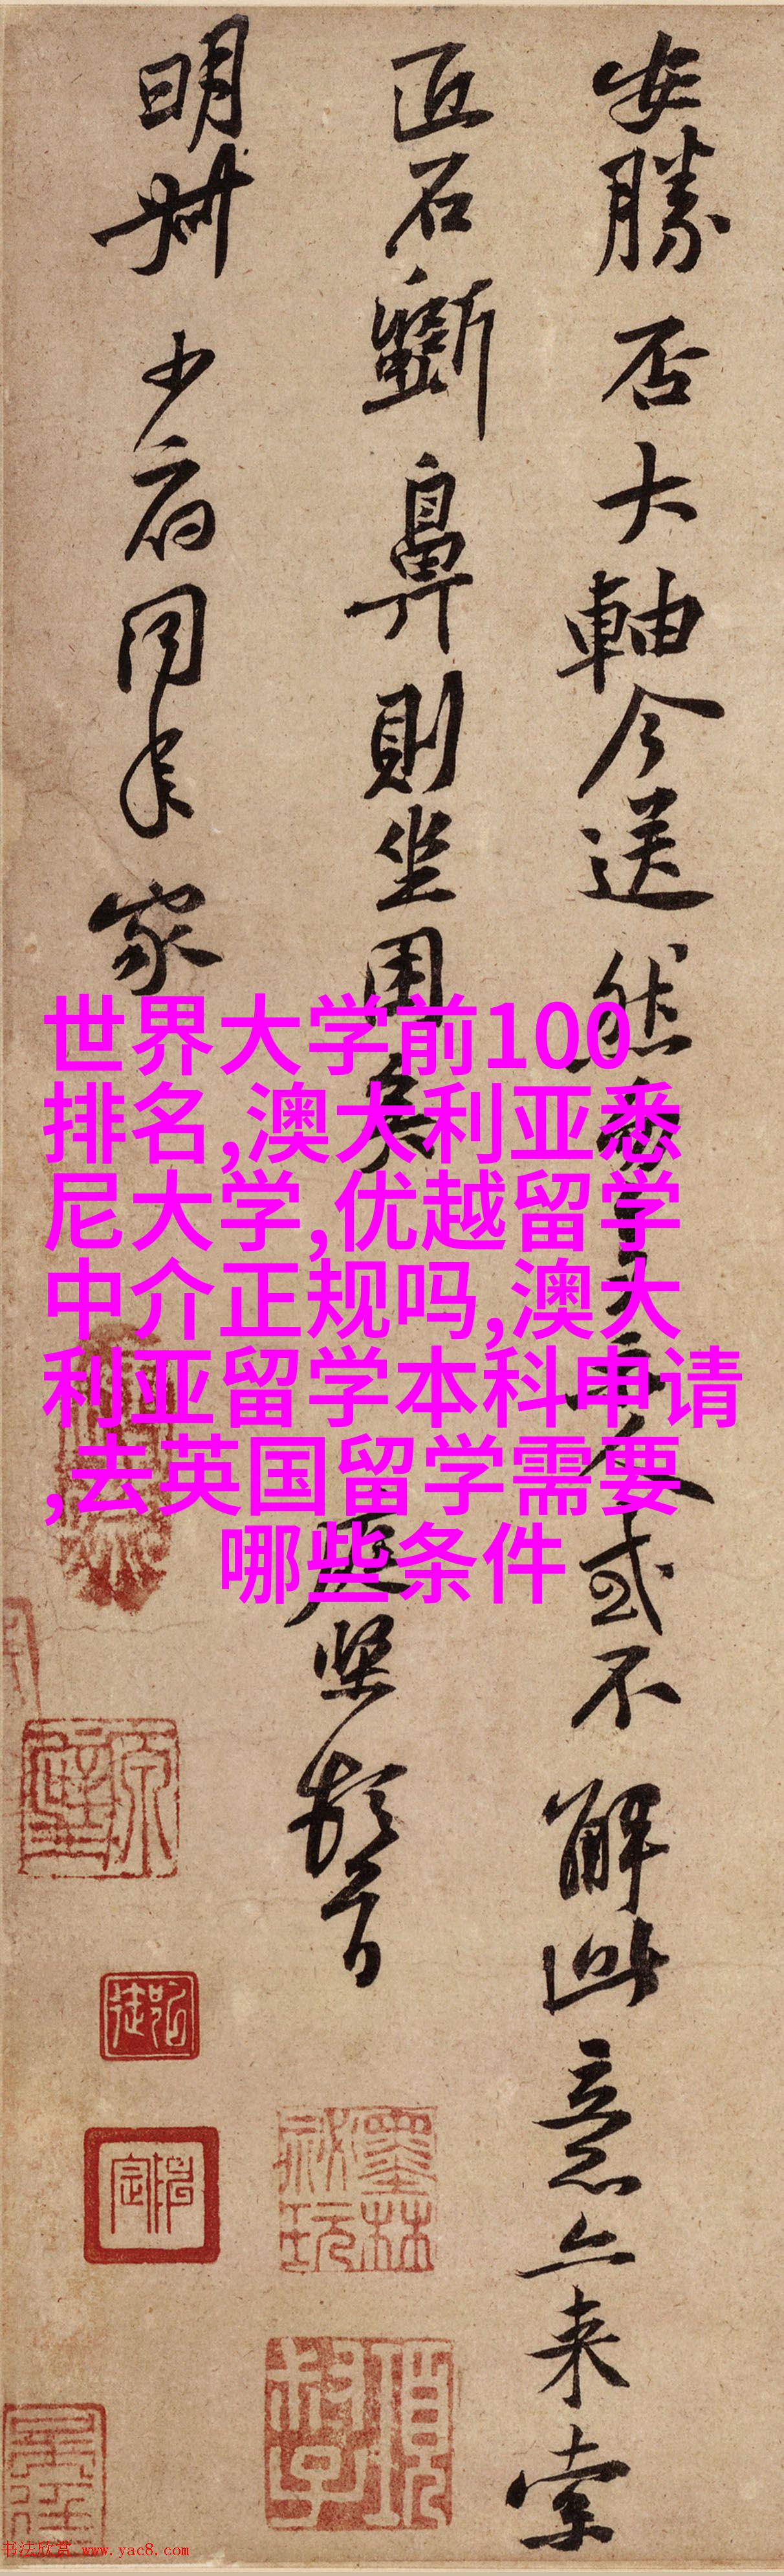 安勝否大軸今送然
人或不解此意亦来索
匠石斲鼻則坐困矣
庭堅頓首
明叔少府同年家
世界大学前100
排名,澳大利亚悉
尼大学,优越留学
中介正规吗,澳大
利亚留学本科申请
,去英国留学需要
哪些条件
墨林
祕玩
书法欣赏 www.yac8.com